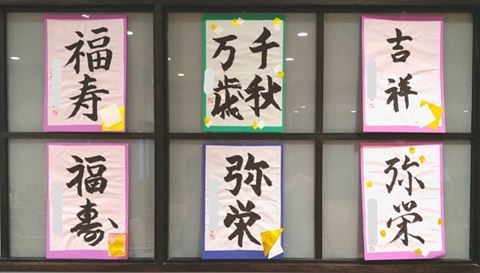 福寿
千秋
万歳
吉祥
福壽
弥栄
弥栄